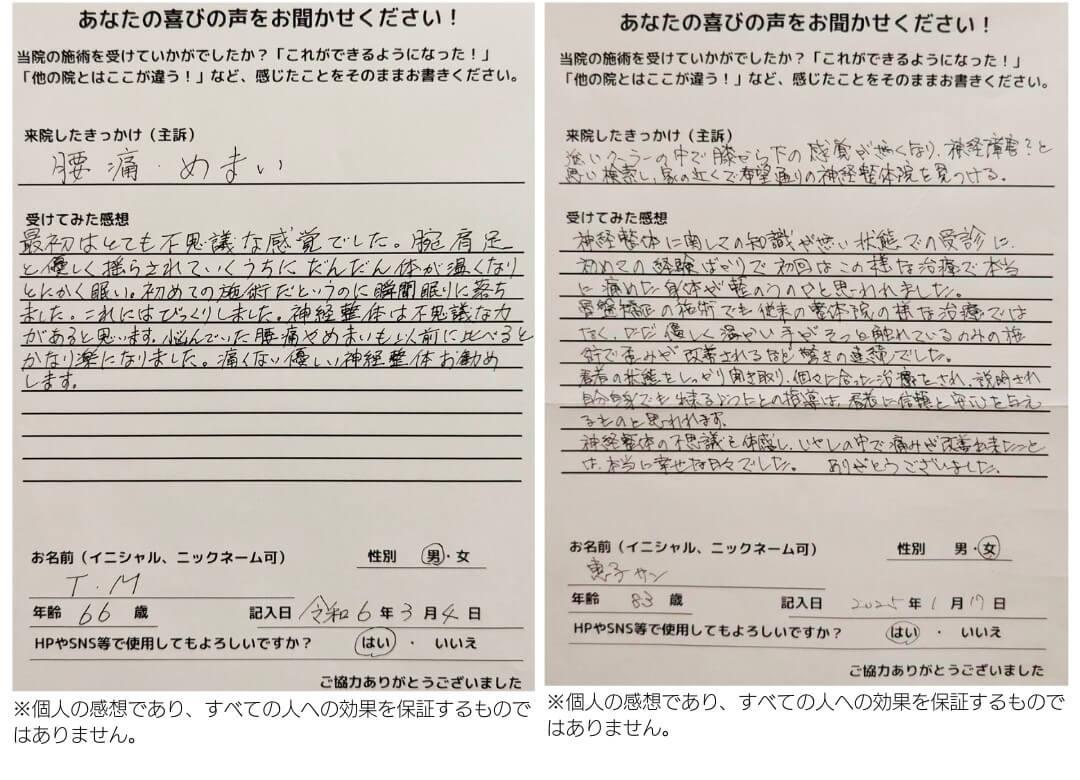 あなたの喜びの声をお聞かせください！
当院の施術を受けていかがでしたか？「これができるようになった！」
「他の院とはここが違う！」など、感じたことをそのままお書きください。
来院したきっかけ（主訴）
腰痛・めまい
受けてみた感想
最初はとても不思議な感覚でした。腕肩足
と優しく揺らされていくうちにだんだん体が温くなり
とにかく眠い。初めての施術だというのに瞬間眠りに落ち
ました。これにはびっくりしました。神経整体は不思議な力
があると思います。悩んでいた腰痛やめまいも以前に比べると
かなり楽になりました。痛くない優しい神経整体お勧め
します。
お名前（イニシャル、ニックネーム可） 性別 男・女
T.M
年齢 66 歳 記入日 令和6年3月4日
HPやSNS等で使用してもよろしいですか？ はい ・ いいえ
ご協力ありがとうございました
※個人の感想であり、すべての人への効果を保証するもので
はありません。
あなたの喜びの声をお聞かせください！
当院の施術を受けていかがでしたか？「これができるようになった！」
「他の院とはここが違う！」など、感じたことをそのままお書きください。
来院したきっかけ（主訴）
クーラーの中で膝から下の感覚が無くなり、神経障害？と
思い検索し、家の近くで希望通りの神経整体院を見つける。
受けてみた感想
神経整体に関しての知識が無い状態での受診に、
初めての経験ばかりで初回はこの様な治療で本当
に痛めた身体が整のうのかと思われました。
骨盤矯正の施術でも従来の整体院の様な治療では
なく、ただ優しく温かい手がそっと触れているのみの施
術で歪みが改善されるなど驚きの連続でした。
患者の状態をしっかり聞き取り、個々に合った治療をされ、説明され
自分自身でも出来るようにとの指導は、患者に信頼と安心を与え
るものと思われます。
神経整体の不思議を体感し、いやしの中で痛みが改善出来たこと
は、本当に幸せな日々でした。 ありがとうございました。
お名前（イニシャル、ニックネーム可） 性別 男・女
恵子サン
年齢 83 歳 記入日 2025年1月17日
HPやSNS等で使用してもよろしいですか？ はい ・ いいえ
ご協力ありがとうございました
※個人の感想であり、すべての人への効果を保証するもので
はありません。